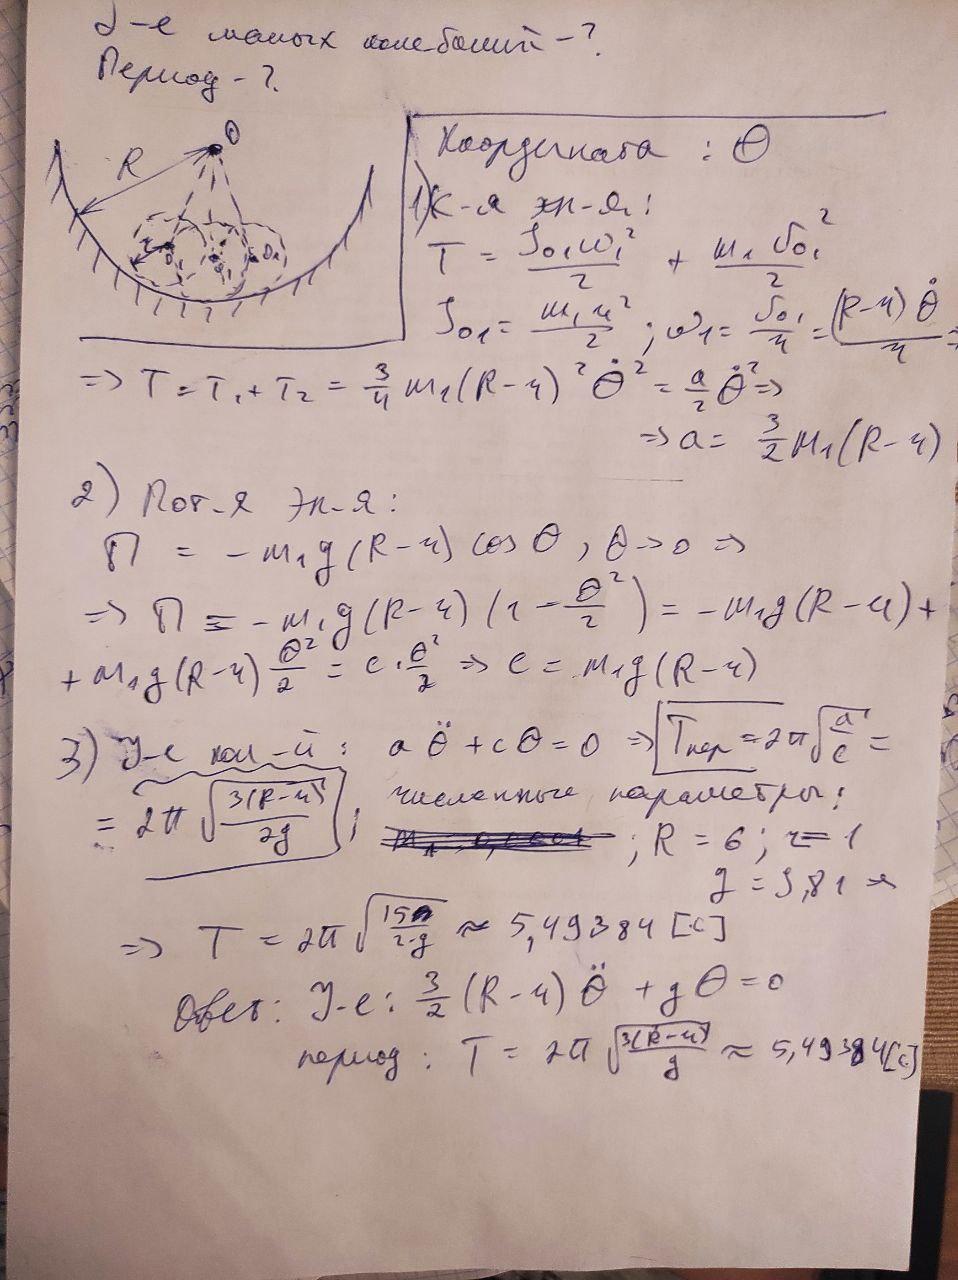 У-е малых колебаний - ?
Период - ?
O
R
r
O₁
Координата : θ
1) К-я эн-я:
T = J₀₁ω₁²/2 + m₁v₀₁²/2
J₀₁ = m₁r²/2 ; ω₁ = v₀₁/r = (R-r)θ̇/r =>
=> T = T₁ + T₂ = 3/4 m₁(R-r)²θ̇² = a/2 θ̇² =>
=> a = 3/2 m₁(R-r)
2) Пот-я эн-я:
П = -m₁g(R-r) cos θ, θ → 0 =>
=> П = -m₁g(R-r)(1 - θ²/2) = -m₁g(R-r) +
+ m₁g(R-r) θ²/2 = c · θ²/2 => c = m₁g(R-r)
3) У-е кол-й: a θ̈ + cθ = 0 => Tпер = 2π√(a/c) =
= 2π √(3(R-r)/2g) ; численные параметры:
; R = 6 ; r = 1
g = 9,81 =>
=> T = 2π √(15/2·g) ≈ 5,49384 [c]
Ответ: У-е: 3/2 (R-r) θ̈ + gθ = 0
период : T = 2π √(3(R-r)/g) ≈ 5,49384 [c]